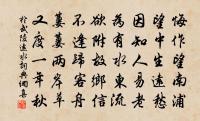 悔作望南浦
望中生遠愁
因知人易老
為有水東流
欲附故鄉信
不逢歸客舟
萋萋兩岸草
又度一年秋
於武陵遠水詞典網集